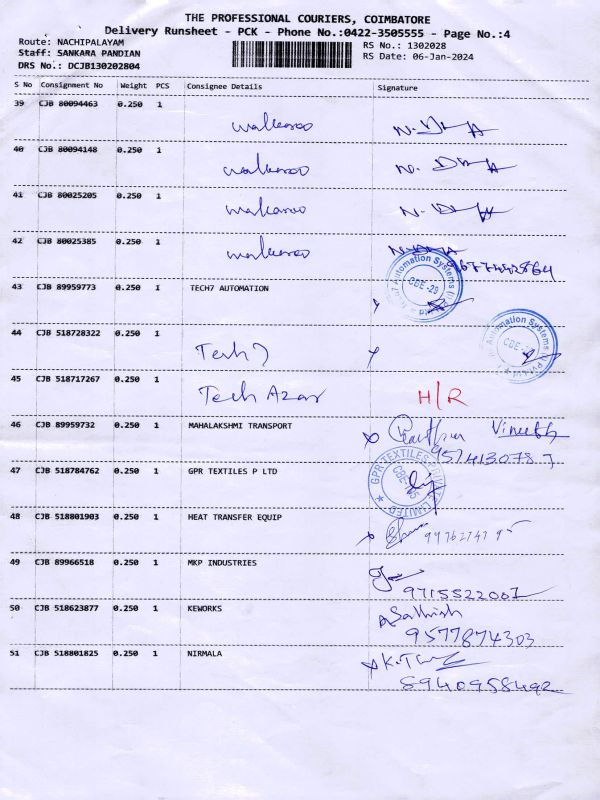 THE PROFESSIONAL COURIERS, COIMBATORE
Delivery Runsheet - PCK - Phone No.:0422-3505555 - Page No.:4
Route: NACHIPALAYAM
Staff: SANKARA PANDIAN
DRS No.: DCJB130202804
RS No.: 1302028
RS Date: 06-Jan-2024
S No Consignment No Weight PCS Consignee Details Signature
39 CJB 80094463 0.250 1
40 CJB 80094148 0.250 1
41 CJB 80025205 0.250 1
42 CJB 80025385 0.250 1
43 CJB 89959773 0.250 1 TECH7 AUTOMATION
44 CJB 518728322 0.250 1 Tech 7
45 CJB 518717267 0.250 1 Tech Azar H/R
46 CJB 89959732 0.250 1 MAHALAKSHMI TRANSPORT
47 CJB 518784762 0.250 1 GPR TEXTILES P LTD
GPR TEXTILES PRIVATE LIMITED
48 CJB 518801903 0.250 1 HEAT TRANSFER EQUIP
49 CJB 89966518 0.250 1 MKP INDUSTRIES
9715522001
50 CJB 518623877 0.250 1 KEWORKS Sathish
9577874303
51 CJB 518801825 0.250 1 NIRMALA
8940958492